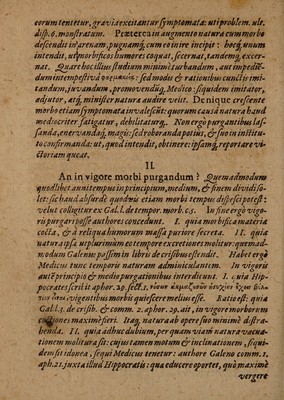 eorum tentetur, gravia excitantur symptomata: uti problem. ult.
disp. 6. monstratum. Præterea in augmento natura cum morbo
descendit in arenam, pugnamq́, cum eo inire incipit: hocq́, unum
intendit, ut morbificos humores coquat, secernat, tandemq́, excer-
nat. Quare bocillius studium minimè turbandum, aut impedien-
dum intempestivâ sed modis & rationibus cunctis imi-
tandum, juvandum, promovendumq́, Medico: siquidem imitator,
adjutor, atq́, minister natura audire velit. Denique crescente
morbo etiam symptomata invalescūt: quorum causâ natura haud
mediocriter, fatigatur, debilitaturq́. Non ergò purgantibus las-
sanda, enervandaq́, magis: sed roboranda potius, & suo in institu-
to confirmanda: ut, quod intendit, obtinere: ipsamq́, reportare vi-
ctoriam queat.
II.
An in vigore morbi purgandum? Quemadmodum
quodlibet anni tempus in principium, medium, & finem dividi so-
let: sic haud absurdè quodvis etiam morbi tempus dispesci potest:
velut colligitur ex Gal. l. de tempor. morb. c. 5. In fine ergò vigo-
ris purgari posse authores concedunt. I. quia morbifica materia
cocta, & à reliqua humorum massa puriore secreta. II. quia
natura ipsa ut plurimùm eo tempore excretiones molitur: quemad-
modum Galenus possim in libris de crisibus ostendit. Habet ergò
Medicus tunc temporis naturam adminiculantem. In vigoris
autē principio & medio purgationibus interdicunt. I. quia Hip-
pocrates scribit aphor. 29. sect. 2.
vigentibus morbis quiescere melius esse. Ratio est: quia
Gal. l. 3. de crisib. & comm. 2. aphor. 29. ait, in vigore morborum
coctiones maximè fieri. Itaq́, natura ab opere suo minimè distra-
henda. II. quia adhuc dubium, per quam viam natura vacua-
tionem molitura sit: cujus tamen motum & inclinationem, siqui-
dem sit idonea, sequi Medicus tenetur: authore Galeno comm. 1.
aph. 21. juxta illud Hippocratis: quæ educere oportet, quò maximè
vergere